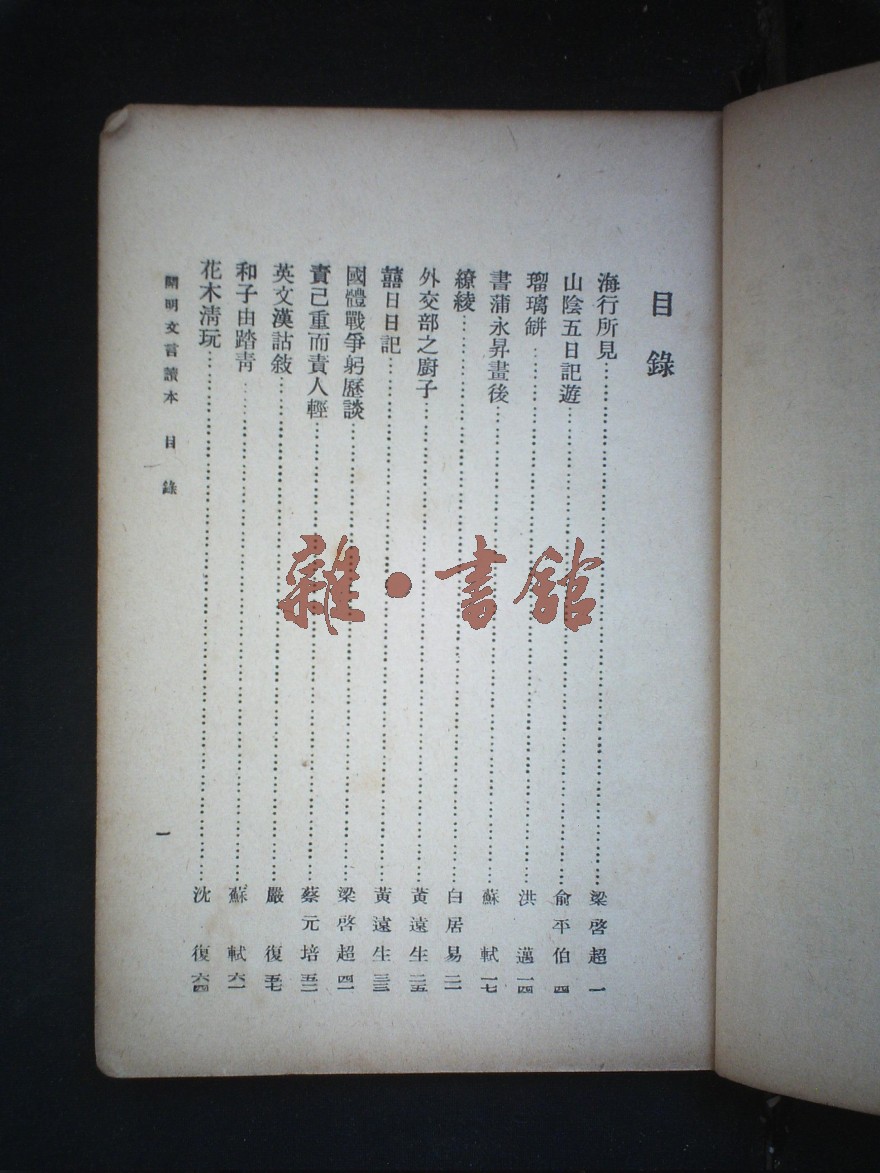 目錄
海行所見⋯⋯梁啓超 一
山陰五日記遊⋯⋯俞平伯 四
瑠璃缾⋯⋯洪邁 一四
書蒲永昇畫後⋯⋯蘇軾 一七
繚綾⋯⋯白居易 二一
外交部之廚子⋯⋯黃遠生 二五
囍日日記⋯⋯黃遠生 三三
國體戰爭躬歷談⋯⋯梁啓超 四一
責己重而責人輕⋯⋯蔡元培 五二
英文漢詁敍⋯⋯嚴復 五七
和子由踏靑⋯⋯蘇軾 六一
花木淸玩⋯⋯沈復 六四
開明文言讀本 目錄
一
雜·書館